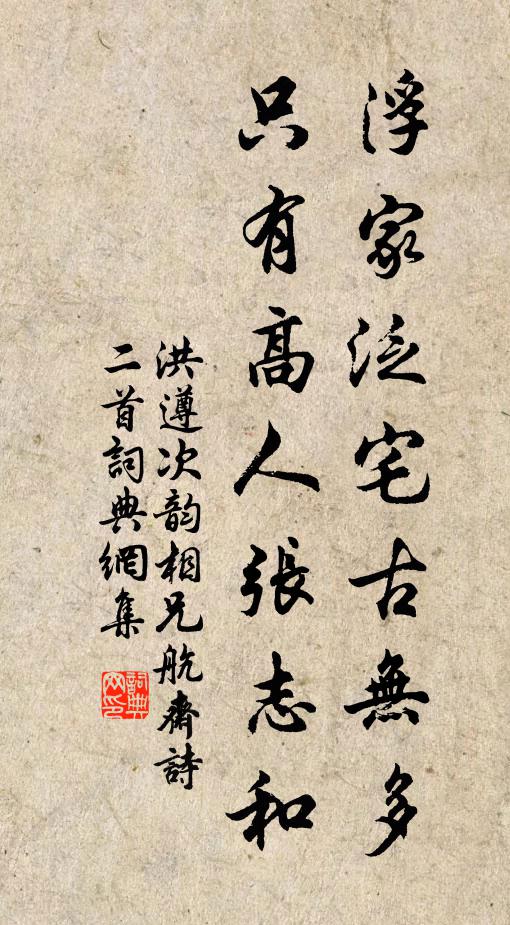 浮家泛宅古無多
只有高人張志和
洪遵次韵相兄航齋詩
二首詞典網集
詞典
网印